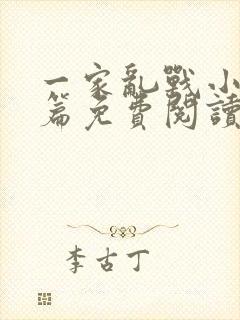 一家亂戰小
篇免費閱讀
李古丁